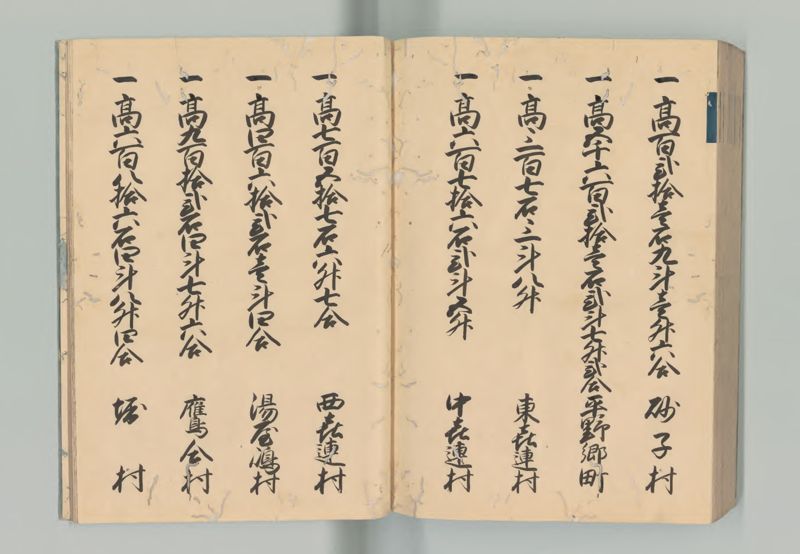 一高百弐拾壱石九斗壱升六合 砂子村
一高五千六百弐拾壱石弐斗七升弐合 平野郷町
一高三百七石三斗八升 東喜連村
一高六百七拾六石弐斗五升 中喜連村
一高七百五拾七石六升七合 西喜連村
一高四百六拾弐石壱斗四合 湯屋嶋村
一高九百拾弐石四斗七升六合 鷹合村
一高六百八拾六石四斗八升四合 堀村